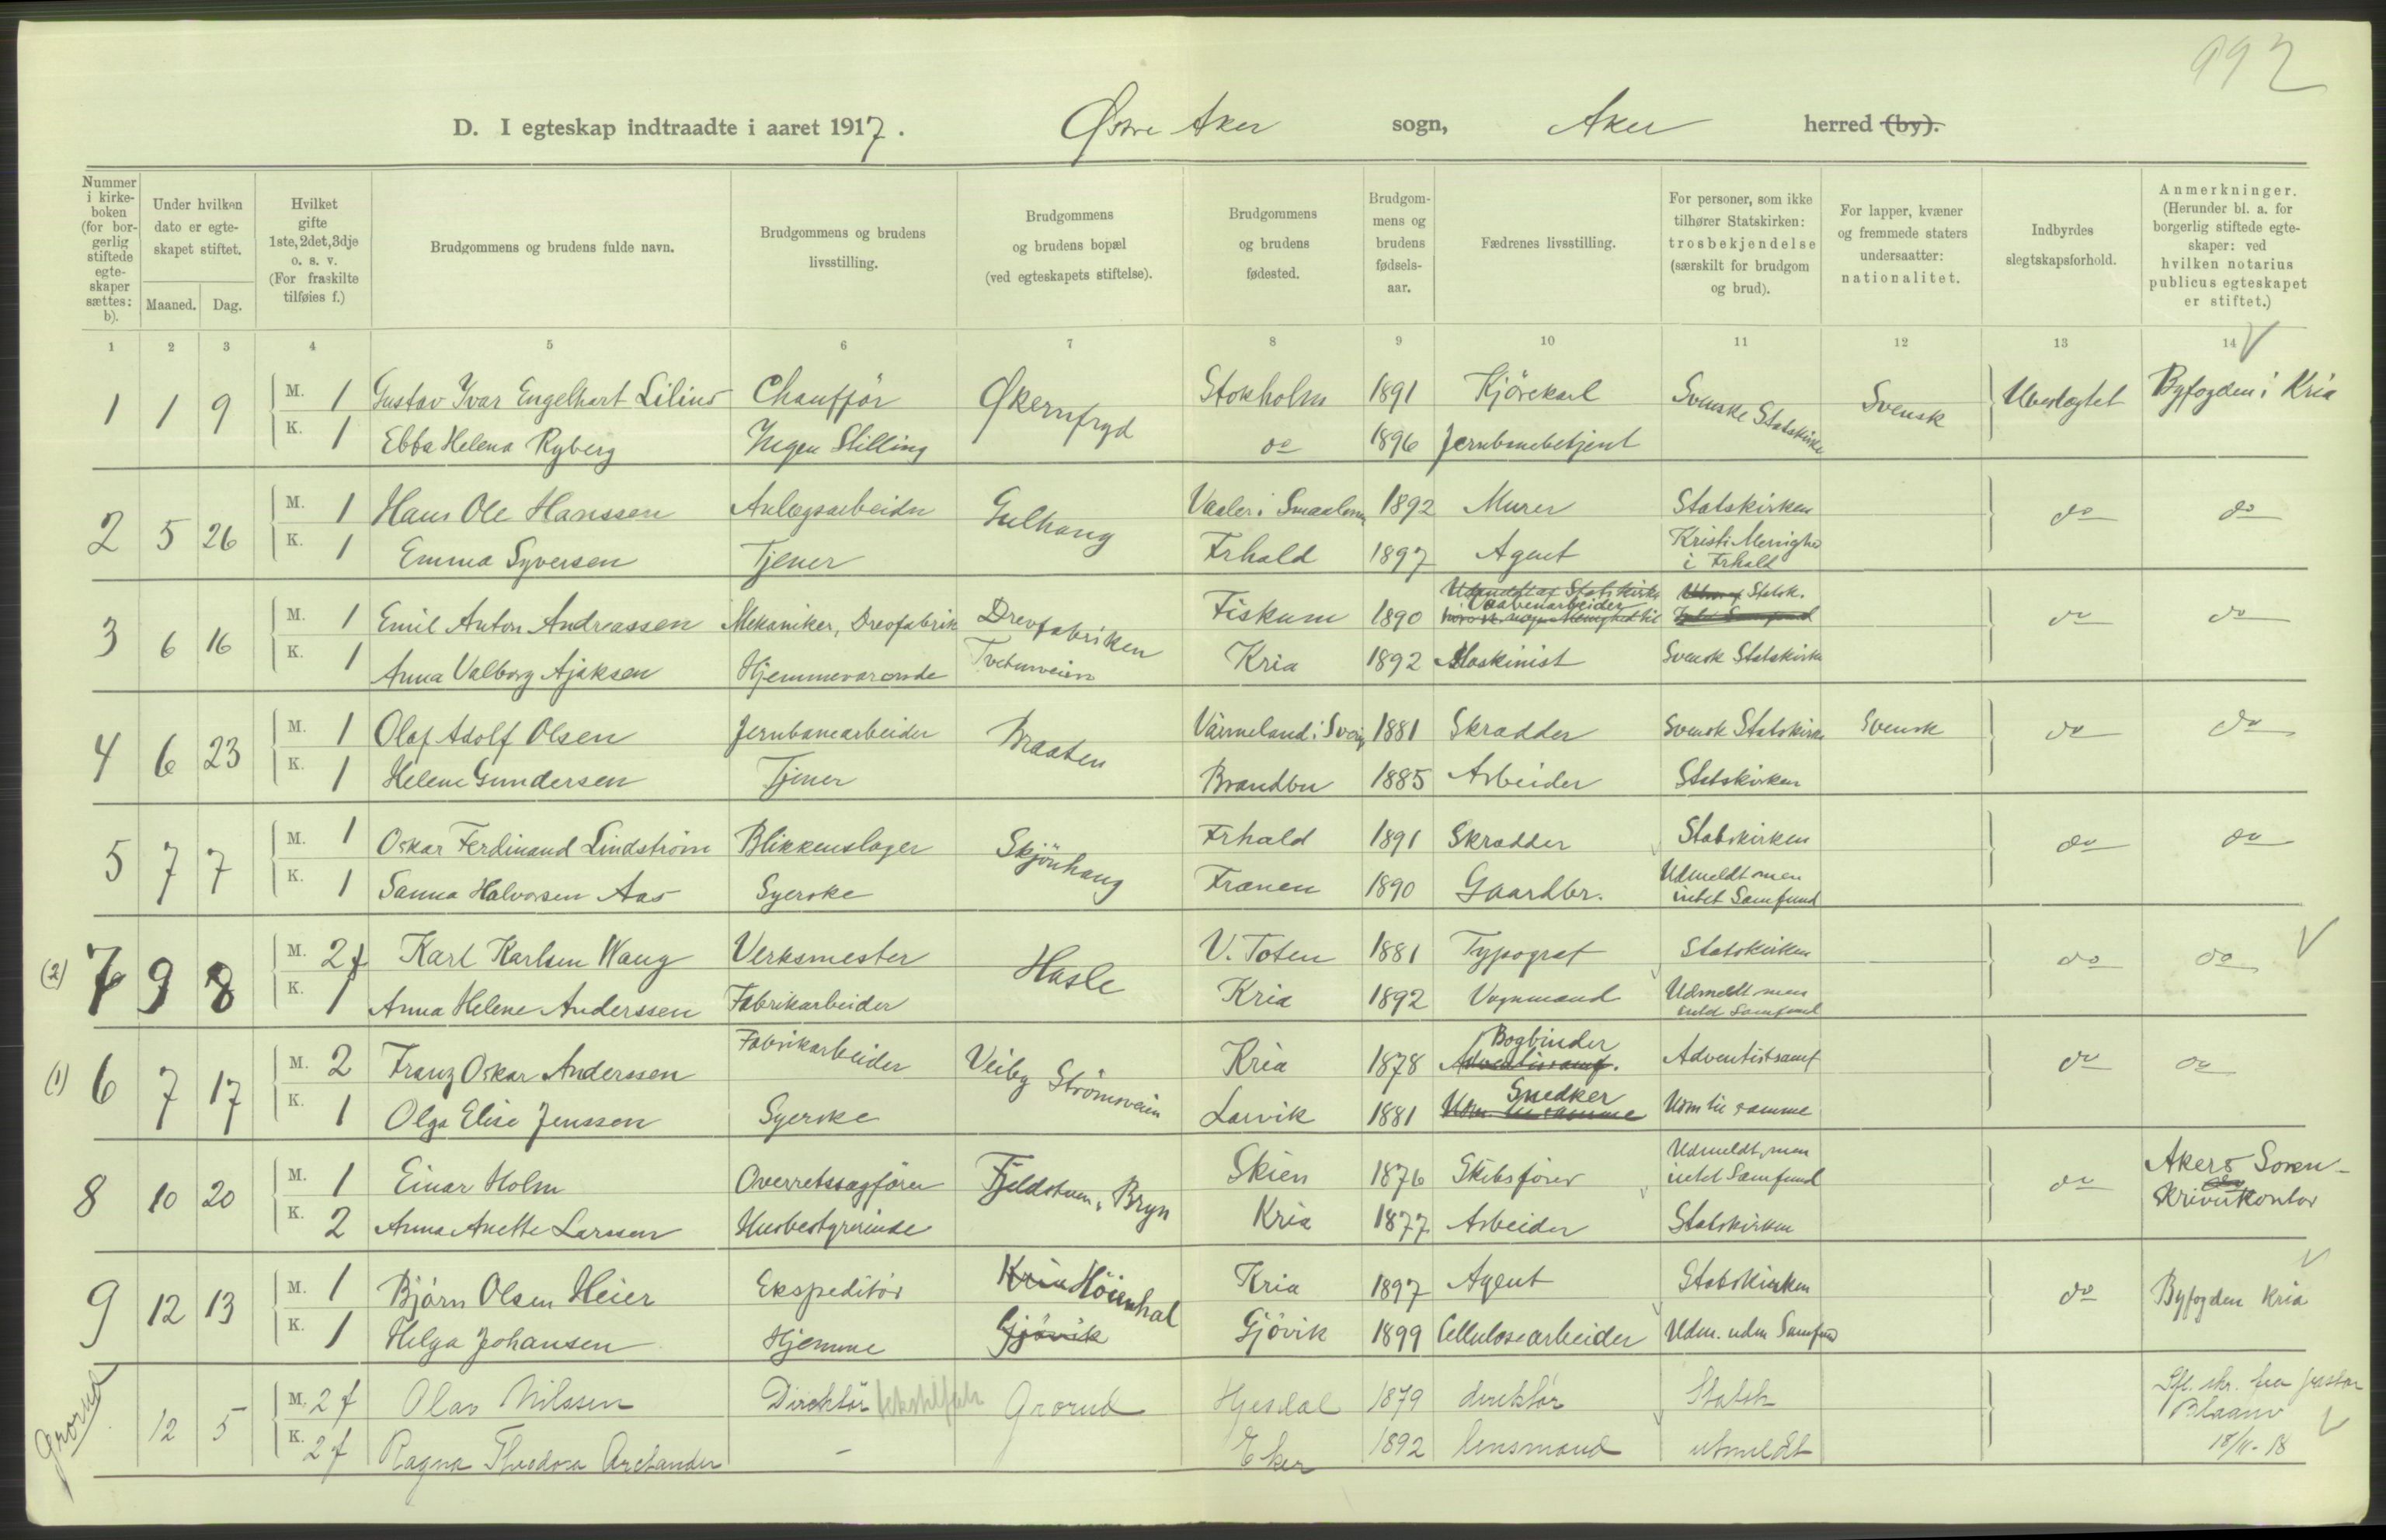 992
D. I egteskap indtraadte i aaret 1917. Østre Aker sogn, Aker herred (by).
Nummer i kirkeboken (for borgerlig stiftede egteskaper sættes: b).
Under hvilken dato er egteskapet stiftet.
Maaned. Dag.
Hvilket gifte 1ste, 2det, 3dje o. s. v. (For fraskilte tilføies f.)
Brudgommens og brudens fulde navn.
Brudgommens og brudens livsstilling.
Brudgommens og brudens bopæl (ved egteskapets stiftelse).
Brudgommens og brudens fødested.
Brudgommens og brudens fødselsaar.
Fædrenes livsstilling.
For personer, som ikke tilhører Statskirken: trosbekjendelse (særskilt for brudgom og brud).
For lapper, kvæner og fremmede staters undersaatter: nationalitet.
Indbyrdes slegtskapsforhold.
Anmerkninger. (Herunder bl. a. for borgerlig stiftede egteskaper: ved hvilken notarius publicus egteskapet er stiftet.)
1 2 3 4 5 6 7 8 9 10 11 12 13 14
1 1 9 M. 1 Gustav Ivar Engelhart Lilius Chauffør Økernfryd Stokholm 1891 Kjørekarl Svenske Statskirke Svensk Ubeslegtet Byfogden i Kria
K. 1 Ebba Helena Ryberg Ingen Stilling do 1896 Jernbanebetjent
2 5 26 M. 1 Hans Ole Hanssen Anlægsarbeider Gulhaug Vaaler i Smaalene 1892 Murer Statskirken do do
K. 1 Emma Syversen Tjener Frhald 1897 Agent Kristi Menighed i Frhald
3 6 16 M. 1 Emil Anton Andreassen Mekaniker, Drevfabrik Drevfabriken Fiskum 1890 Vaabenarbeider Statsk. do do
K. 1 Anna Valborg Ajaksen Hjemmeværende Tvetenveien Kria 1892 Maskinist Svensk Statskirke
4 6 23 M. 1 Olaf Adolf Olsen Jernbanearbeider Braaten Värmeland i Sverig 1881 Skrædder Svensk Statskirke Svensk do do
K. 1 Helene Gundersen Tjener Brandbu 1885 Arbeider Statskirken
5 7 7 M. 1 Oskar Ferdinand Lindstrøm Blikkenslager Skjönhaug Frhald 1891 Skrædder Statskirken do do
K. 1 Sanna Halvorsen Aas Syerske Frænen 1890 Gaardbr. Udmeldt men intet Samfund
(2) 7 9 8 M. 2 f Karl Karlsen Waug Verksmester Hasle V. Toten 1881 Typograf Statskirken do do
K. 1 Anna Helene Anderssen Fabrikarbeider Kria 1892 Vognmand Udmeldt men intet Samfund
(1) 6 7 17 M. 2 Franz Oskar Anderssen Fabrikarbeider Veiby Strømsveien Kria 1878 Bogbinder Adventistsamf. Adventistsamf do do
K. 1 Olga Elise Jenssen Syerske Larvik 1881 Snedker Udm. til samme Udm til samme
8 10 20 M. 1 Einar Holm Overretssagfører Fjeldstuen, Bryn Skien 1876 Skibsfører Udmeldt, men intet Samfund do Akers Sorenskriverkontor
K. 2 Anna Anette Larssen Husbestyrerinde Kria 1877 Arbeider Statskirken
9 12 13 M. 1 Bjørn Olsen Heier Ekspeditør Kria Höienhal Kria 1897 Agent Statskirken do Byfogden Kria
K. 1 Helga Johansen Hjemme Gjövik Gjövik 1899 Cellulosearbeider Udm. uden Samfund
Grorud 12 5 M. 2 f Olav Nilssen Direktör Grorud Hjesdal 1879 direktör Statsk
K. 2 f Ragna Theodora Arctander – Eker 1892 lensmand utmeldt
Eft. skr. fra pastor
Blaauw